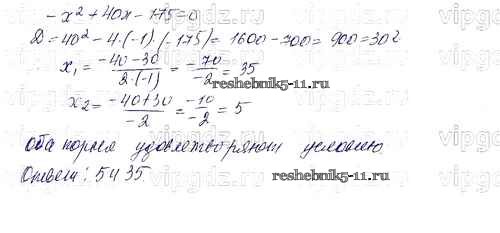 -x² + 40x - 175 = 0
D = 40² - 4·(-1)·(-175) = 1600 - 700 = 900 = 30²
x₁ = (-40-30)/(2·(-1)) = -70/-2 = 35
x₂ = (-40+30)/-2 = -10/-2 = 5
Оба корня удовлетворяют условию.
Ответ: 5 и 35.
reshebnik5-11.ru
reshebnik5-11.ru
vipgdz.ru